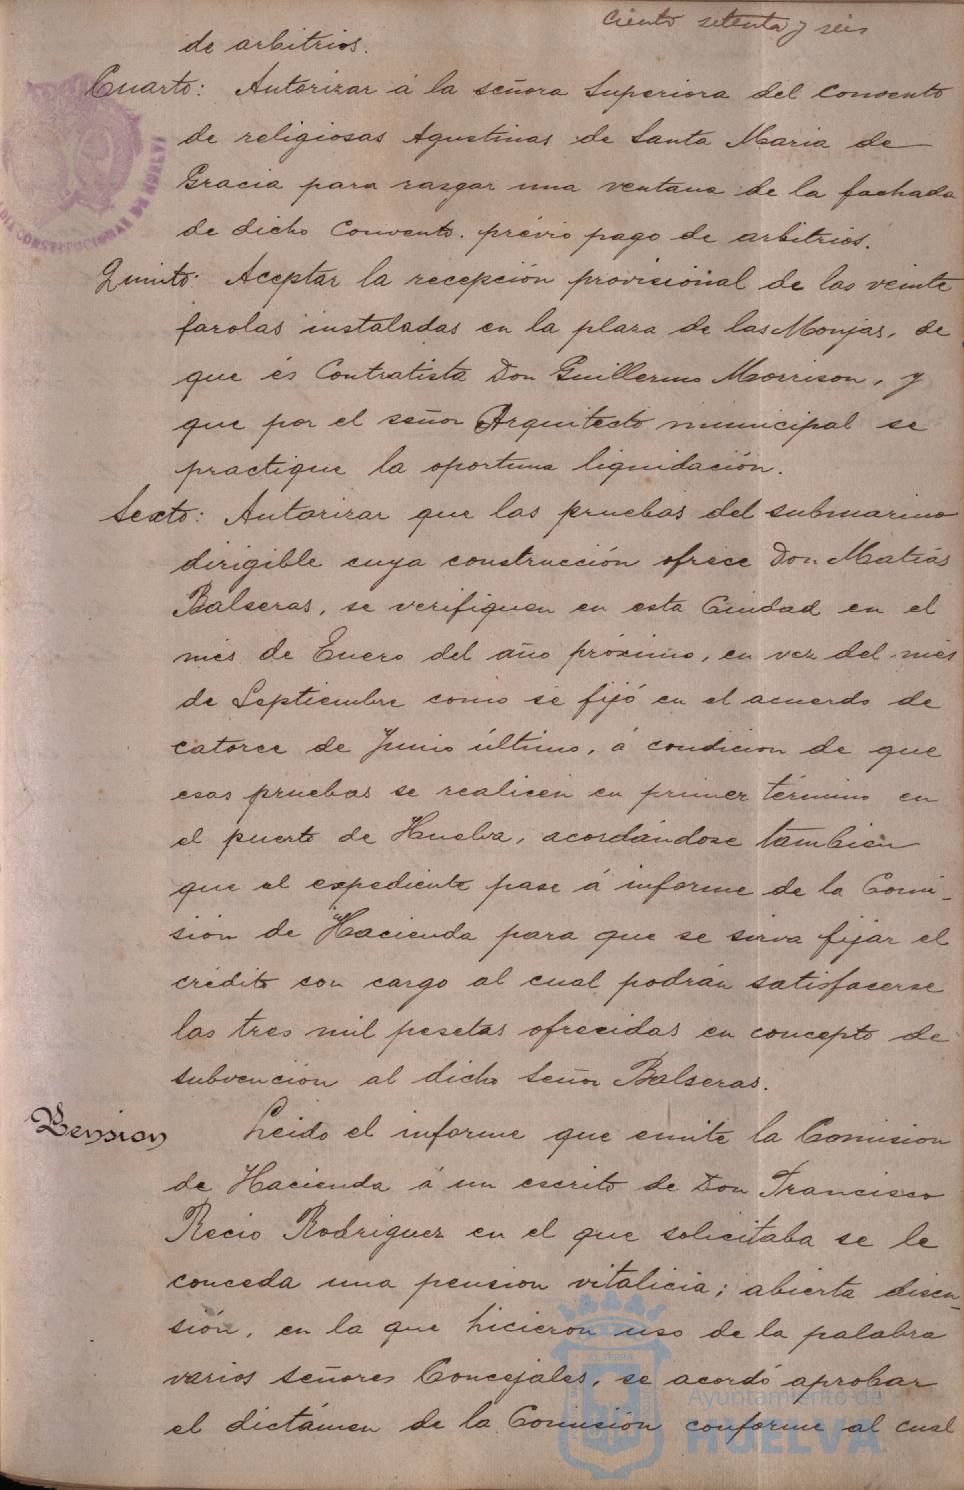 ciento setenta y seis
de arbitrios.
Cuarto: Autorizar á la señora Superiora del Convento
de religiosas Agustinas de Santa Maria de
Gracia para rasgar una ventana de la fachada
de dicho Convento. prévio pago de arbitrios.
Quinto: Aceptar la recepción provisional de las veinte
farolas instaladas en la plaza de las Monjas, de
que és Contratista Don Guillermo Morrison, y
que por el señor Arquitecto municipal se
practique la oportuna liquidación.
Sexto: Autorizar que las pruebas del submarino
dirigible cuya construcción ofrece Don Matias
Balseras, se verifiquen en esta Ciudad en el
mes de Enero del año próximo, en vez del mes
de Septiembre como se fijó en el acuerdo de
catorce de Junio último, á condicion de que
esas pruebas se realicen en primer término en
el puerto de Huelva, acordándose tambien
que el expediente pase á informe de la Comi-
sión de Hacienda para que se sirva fijar el
crédito con cargo al cual podrán satisfacerse
las tres mil pesetas ofrecidas en concepto de
subvencion al dicho Señor Balseras.
Pension
Leido el informe que emite la Comision
de Hacienda á un escrito de Don Francisco
Recio Rodriguez en el que solicitaba se le
conceda una pension vitalicia; abierta discu-
sión, en la que hicieron uso de la palabra
varios señores Concejales, se acordó aprobar
el dictámen de la Comisión conforme al cual
CONSTITUCIONAL DE HUELVA
Ayuntamiento de
HUELVA